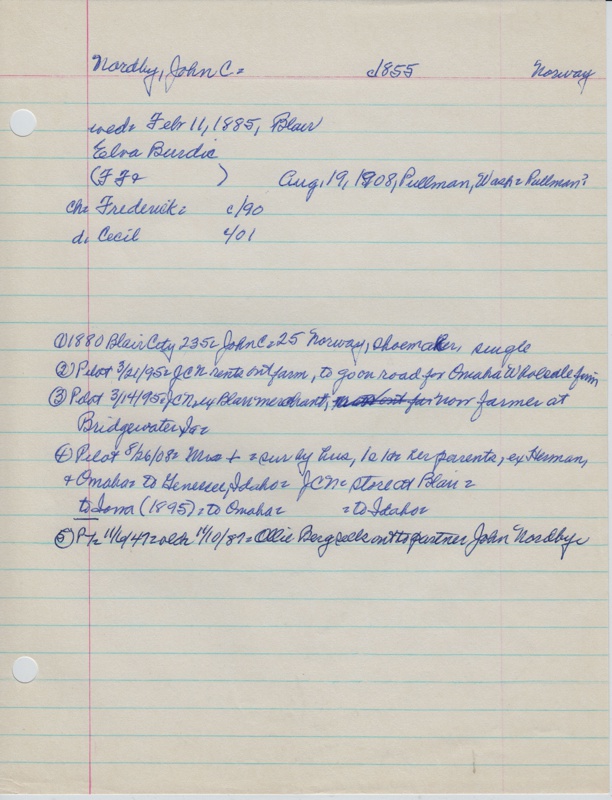 Nordby, John C= c1855 Norway
wed= Febr 11, 1885, Blair
Elva Burdic
(FF& ) Aug, 19, 1908, Pullman, Wash= Pullman?
ch= Frederick= c/90
d. Cecil c/01
① 1880 Blair City 235= John C= 25 Norway, shoemaker, single
② Pilot 3/21/95= JCN rents out farm, to go on road for Omaha Wholesale firm
③ Pilot 3/14/95= JCN, ex Blair merchant, now farmer at
Bridgewater, Ia=
④ Pilot 8/26/08= Mrs + = sur by hus, 1s 1d= her parents, ex Herman,
+ Omaha= to Genesee, Idaho= JCN= store at Blair=
to Iowa (1895)= to Omaha= = to Idaho=
⑤ P/= 11/6/47= 11/10/87= Ollie Berg sells out to partner John Nordby=